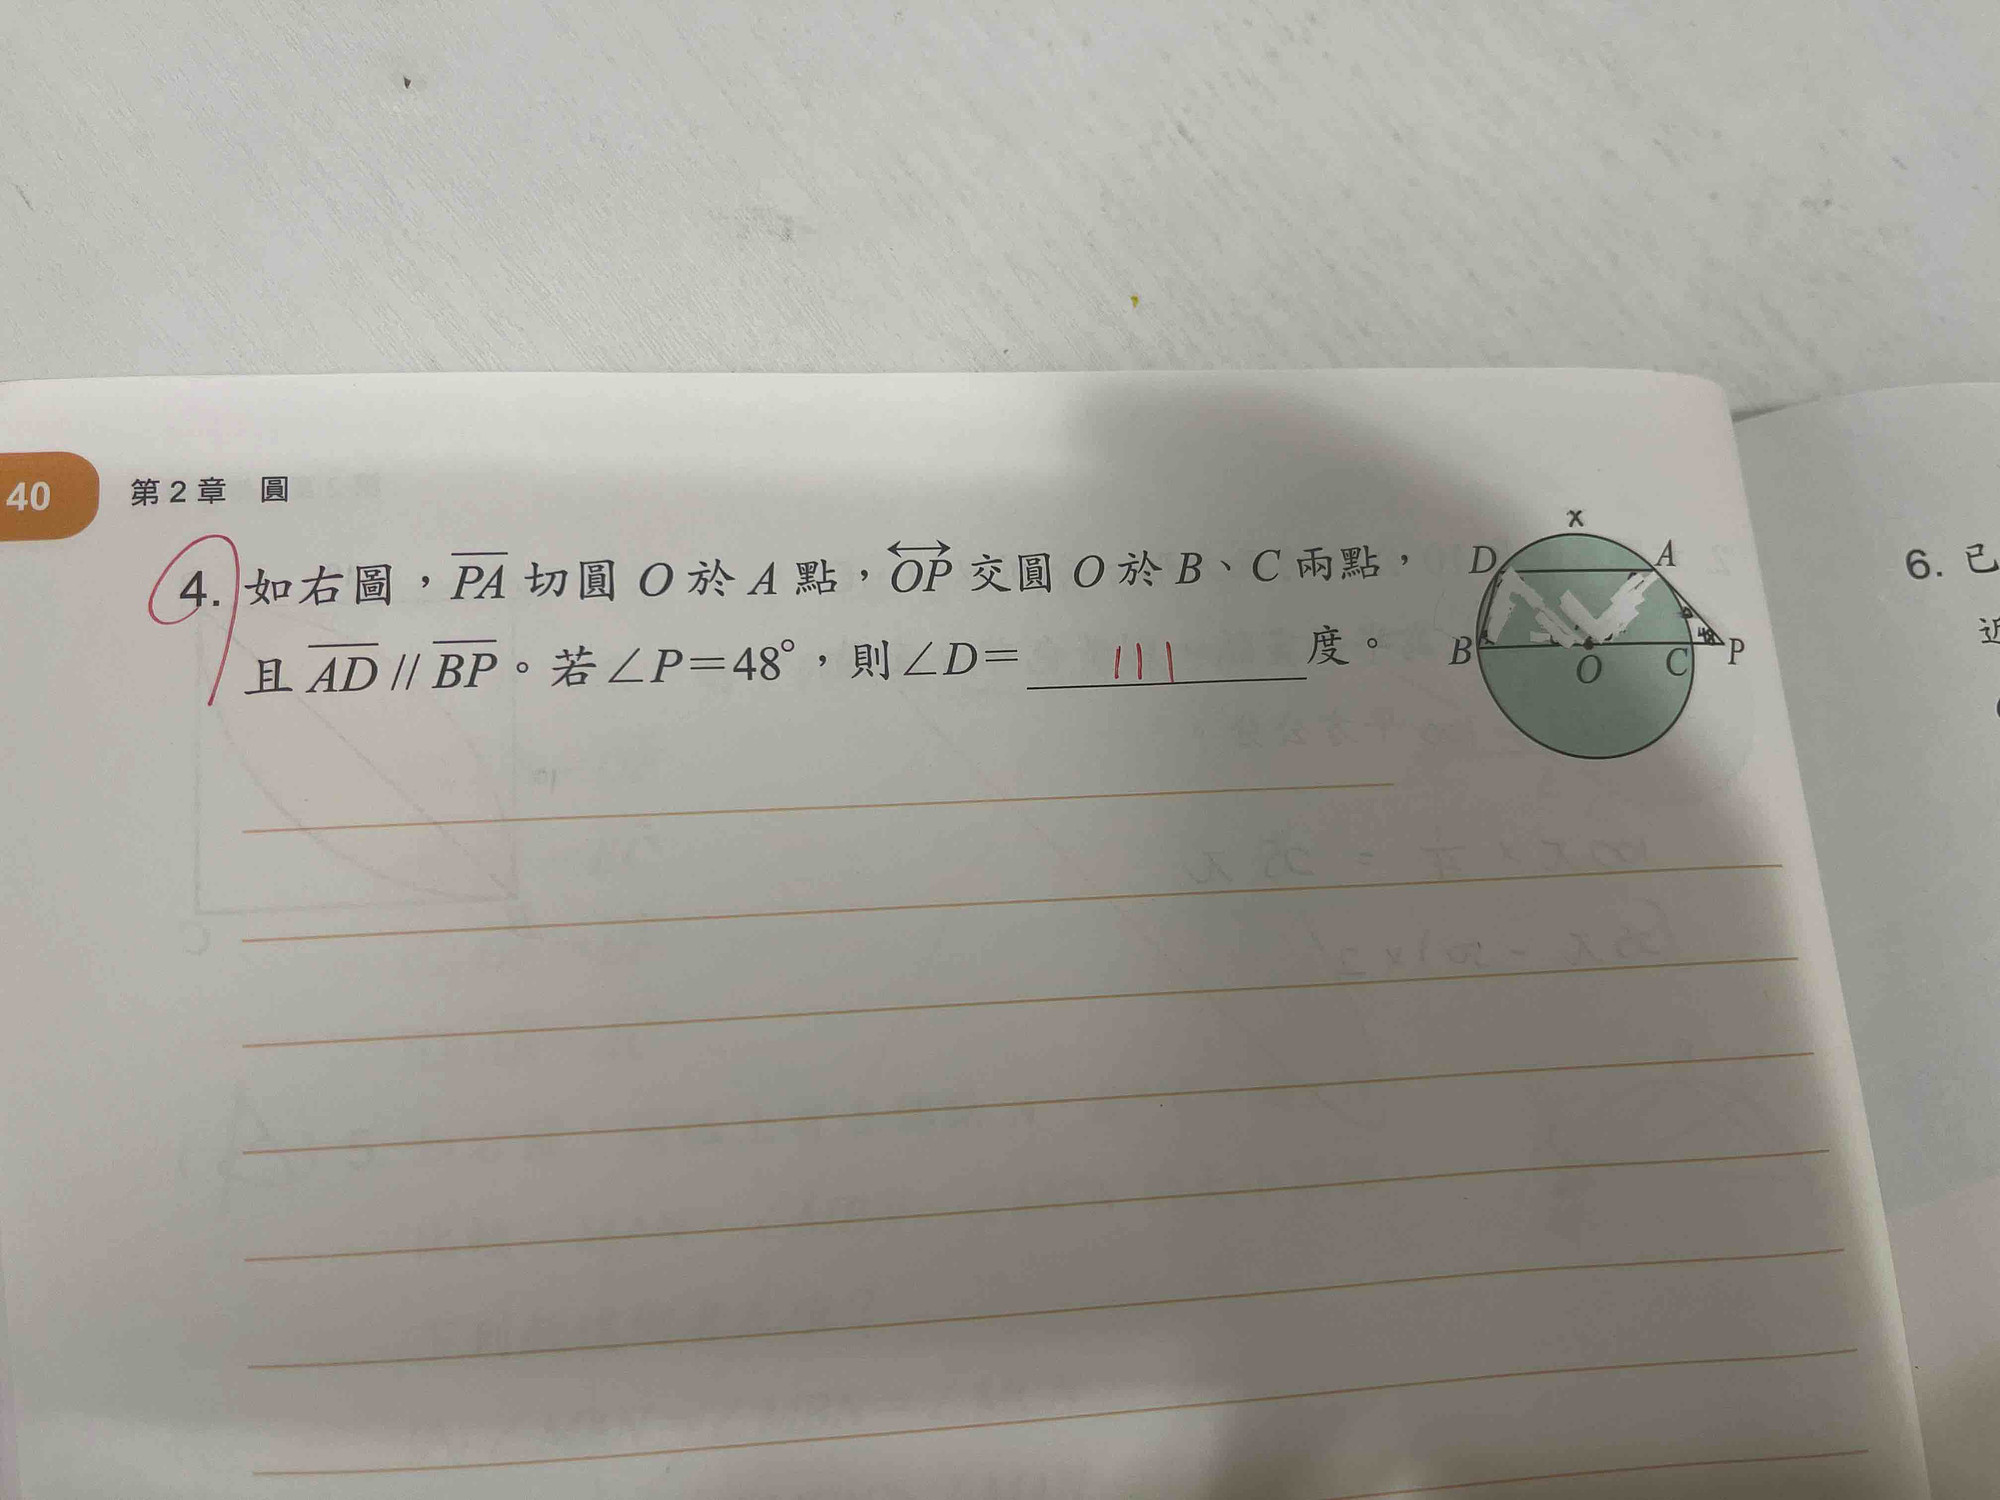 40
第2章 圓
4. 如右圖，PA 切圓 O 於 A 點，OP 交圓 O 於 B、C 兩點，
且 AD // BP。若∠P＝48°，則∠D＝ 111 度。
x
D
A
B
O
C
P
6. 已
近